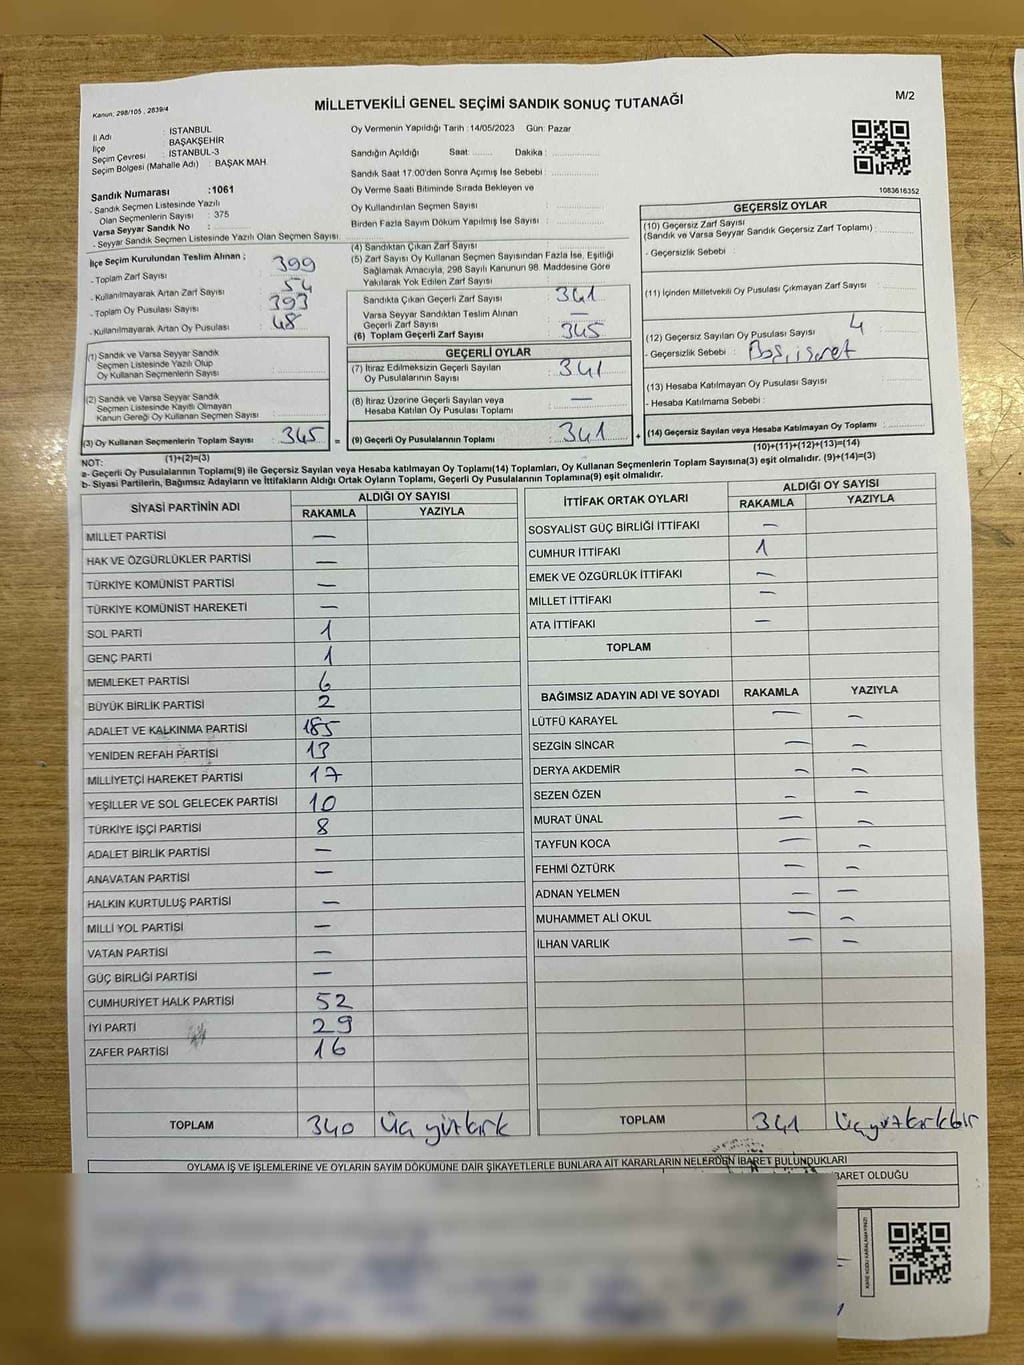 Kanun: 298/105 , 2839/4
MİLLETVEKİLİ GENEL SEÇİMİ SANDIK SONUÇ TUTANAĞI
M/2
İl Adı : İSTANBUL
İlçe : BAŞAKŞEHİR
Seçim Çevresi : İSTANBUL-3
Seçim Bölgesi (Mahalle Adı) : BAŞAK MAH.
Sandık Numarası :1061
- Sandık Seçmen Listesinde Yazılı
Olan Seçmenlerin Sayısı : 375
Varsa Seyyar Sandık No :
- Seyyar Sandık Seçmen Listesinde Yazılı Olan Seçmen Sayısı
Oy Vermenin Yapıldığı Tarih :14/05/2023 Gün: Pazar
Sandığın Açıldığı Saat: ........ Dakika: ................
Sandık Saat 17:00'den Sonra Açımış İse Sebebi :
Oy Verme Saati Bitiminde Sırada Bekleyen ve
Oy Kullandırılan Seçmen Sayısı :
Birden Fazla Sayım Döküm Yapılmış İse Sayısı :
1083616352
İlçe Seçim Kurulundan Teslim Alınan ;
- Toplam Zarf Sayısı : 399
- Kullanılmayarak Artan Zarf Sayısı : 54
- Toplam Oy Pusulası Sayısı : 393
- Kullanılmayarak Artan Oy Pusulası : 48
(1) Sandık ve Varsa Seyyar Sandık
Seçmen Listesinde Yazılı Olup
Oy Kullanan Seçmenlerin Sayısı :
(2) Sandık ve Varsa Seyyar Sandık
Seçmen Listesinde Kayıtlı Olmayan
Kanun Gereği Oy Kullanan Seçmen Sayısı :
(3) Oy Kullanan Seçmenlerin Toplam Sayısı : 345 =
(1)+(2)=(3)
(4) Sandıktan Çıkan Zarf Sayısı :
(5) Zarf Sayısı Oy Kullanan Seçmen Sayısından Fazla İse, Eşitliği
Sağlamak Amacıyla, 298 Sayılı Kanunun 98. Maddesine Göre
Yakılarak Yok Edilen Zarf Sayısı :
Sandıkta Çıkan Geçerli Zarf Sayısı : 341
Varsa Seyyar Sandıktan Teslim Alınan
Geçerli Zarf Sayısı : —
(6) Toplam Geçerli Zarf Sayısı : 345
GEÇERLİ OYLAR
(7) İtiraz Edilmeksizin Geçerli Sayılan
Oy Pusulalarının Sayısı : 341
(8) İtiraz Üzerine Geçerli Sayılan veya
Hesaba Katılan Oy Pusulası Toplamı : —
(9) Geçerli Oy Pusulalarının Toplamı : 341 +
GEÇERSİZ OYLAR
(10) Geçersiz Zarf Sayısı
(Sandık ve Varsa Seyyar Sandık Geçersiz Zarf Toplamı) :
- Geçersizlik Sebebi :
(11) İçinden Milletvekili Oy Pusulası Çıkmayan Zarf Sayısı :
(12) Geçersiz Sayılan Oy Pusulası Sayısı : 4
- Geçersizlik Sebebi : Boş, işaret
(13) Hesaba Katılmayan Oy Pusulası Sayısı :
- Hesaba Katılmama Sebebi :
(14) Geçersiz Sayılan veya Hesaba Katılmayan Oy Toplamı :
(10)+(11)+(12)+(13)=(14)
NOT:
a- Geçerli Oy Pusulalarının Toplamı(9) ile Geçersiz Sayılan veya Hesaba katılmayan Oy Toplamı(14) Toplamları, Oy Kullanan Seçmenlerin Toplam Sayısına(3) eşit olmalıdır. (9)+(14)=(3)
b- Siyasi Partilerin, Bağımsız Adayların ve İttifakların Aldığı Ortak Oyların Toplamı, Geçerli Oy Pusulalarının Toplamına(9) eşit olmalıdır.
SİYASİ PARTİNİN ADI ALDIĞI OY SAYISI
RAKAMLA YAZIYLA
MİLLET PARTİSİ —
HAK VE ÖZGÜRLÜKLER PARTİSİ —
TÜRKİYE KOMÜNİST PARTİSİ —
TÜRKİYE KOMÜNİST HAREKETİ —
SOL PARTİ 1
GENÇ PARTİ 1
MEMLEKET PARTİSİ 6
BÜYÜK BİRLİK PARTİSİ 2
ADALET VE KALKINMA PARTİSİ 185
YENİDEN REFAH PARTİSİ 13
MİLLİYETÇİ HAREKET PARTİSİ 17
YEŞİLLER VE SOL GELECEK PARTİSİ 10
TÜRKİYE İŞÇİ PARTİSİ 8
ADALET BİRLİK PARTİSİ —
ANAVATAN PARTİSİ —
HALKIN KURTULUŞ PARTİSİ —
MİLLİ YOL PARTİSİ —
VATAN PARTİSİ —
GÜÇ BİRLİĞİ PARTİSİ —
CUMHURİYET HALK PARTİSİ 52
İYİ PARTİ 29
ZAFER PARTİSİ 16
TOPLAM 340 üç yüz kırk
İTTİFAK ORTAK OYLARI ALDIĞI OY SAYISI
RAKAMLA YAZIYLA
SOSYALİST GÜÇ BİRLİĞİ İTTİFAKI —
CUMHUR İTTİFAKI 1
EMEK VE ÖZGÜRLÜK İTTİFAKI —
MİLLET İTTİFAKI —
ATA İTTİFAKI —
TOPLAM
BAĞIMSIZ ADAYIN ADI VE SOYADI RAKAMLA YAZIYLA
LÜTFÜ KARAYEL — —
SEZGİN SİNCAR — —
DERYA AKDEMİR — —
SEZEN ÖZEN — —
MURAT ÜNAL — —
TAYFUN KOCA — —
FEHMİ ÖZTÜRK — —
ADNAN YELMEN — —
MUHAMMET ALİ OKUL — —
İLHAN VARLIK — —
TOPLAM 341 üçyüzkırkbir
OYLAMA İŞ VE İŞLEMLERİNE VE OYLARIN SAYIM DÖKÜMÜNE DAİR ŞİKAYETLERLE BUNLARA AİT KARARLARIN NELERDEN İBARET BULUNDUKLARI
BARET OLDUĞU
KARE KODU KARALAMAYINIZ!